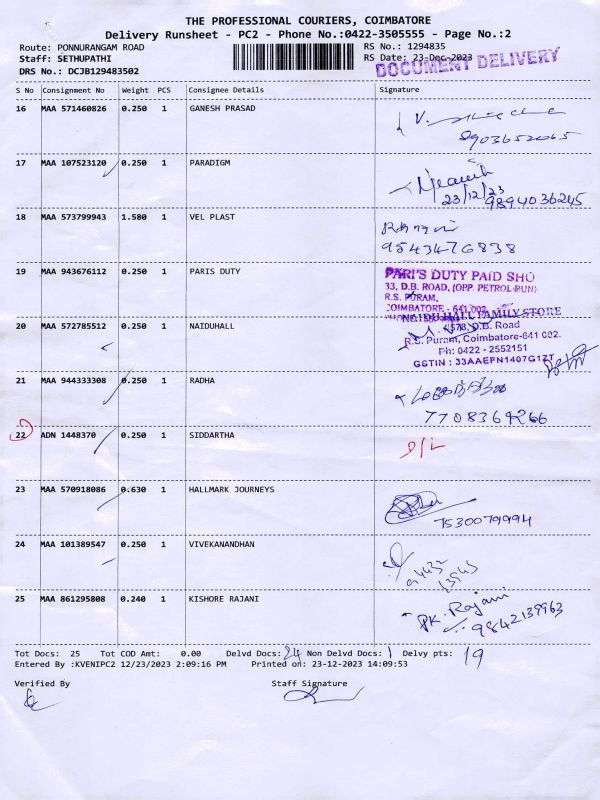 THE PROFESSIONAL COURIERS, COIMBATORE
Delivery Runsheet - PC2 - Phone No.:0422-3505555 - Page No.:2
Route: PONNURANGAM ROAD RS No.: 1294835
Staff: SETHUPATHI RS Date: 23-Dec-2023
DOCUMENT DELIVERY
DRS No.: DCJB129483502
S No Consignment No Weight PCS Consignee Details Signature
16 MAA 571460826 0.250 1 GANESH PRASAD
8903652065
17 MAA 107523120 0.250 1 PARADIGM
23/12/23
9894036245
18 MAA 573799943 1.580 1 VEL PLAST
9543476838
19 MAA 943676112 0.250 1 PARIS DUTY
PARI'S DUTY PAID SHO
33, D.B. ROAD, (OPP. PETROL PUN
R.S. PURAM,
COIMBATORE - 641 002
20 MAA 572785512 0.250 1 NAIDUHALL
NAIDU HALL FAMILY STORE
D.B. Road
R.S. Puram, Coimbatore-641 002.
Ph: 0422 - 2552151
GSTIN : 33AAEFN1407G1ZT
21 MAA 944333308 0.250 1 RADHA
7708369266
22 ADN 1448370 0.250 1 SIDDARTHA D/L
23 MAA 570918086 0.630 1 HALLMARK JOURNEYS
7530079994
24 MAA 101389547 0.250 1 VIVEKANANDHAN
25 MAA 861295808 0.240 1 KISHORE RAJANI
PK. Rajani
9842139963
Tot Docs: 25 Tot COD Amt: 0.00 Delvd Docs: 24 Non Delvd Docs: 1 Delvy pts: 19
Entered By :KVENIPC2 12/23/2023 2:09:16 PM Printed on: 23-12-2023 14:09:53
Verified By Staff Signature